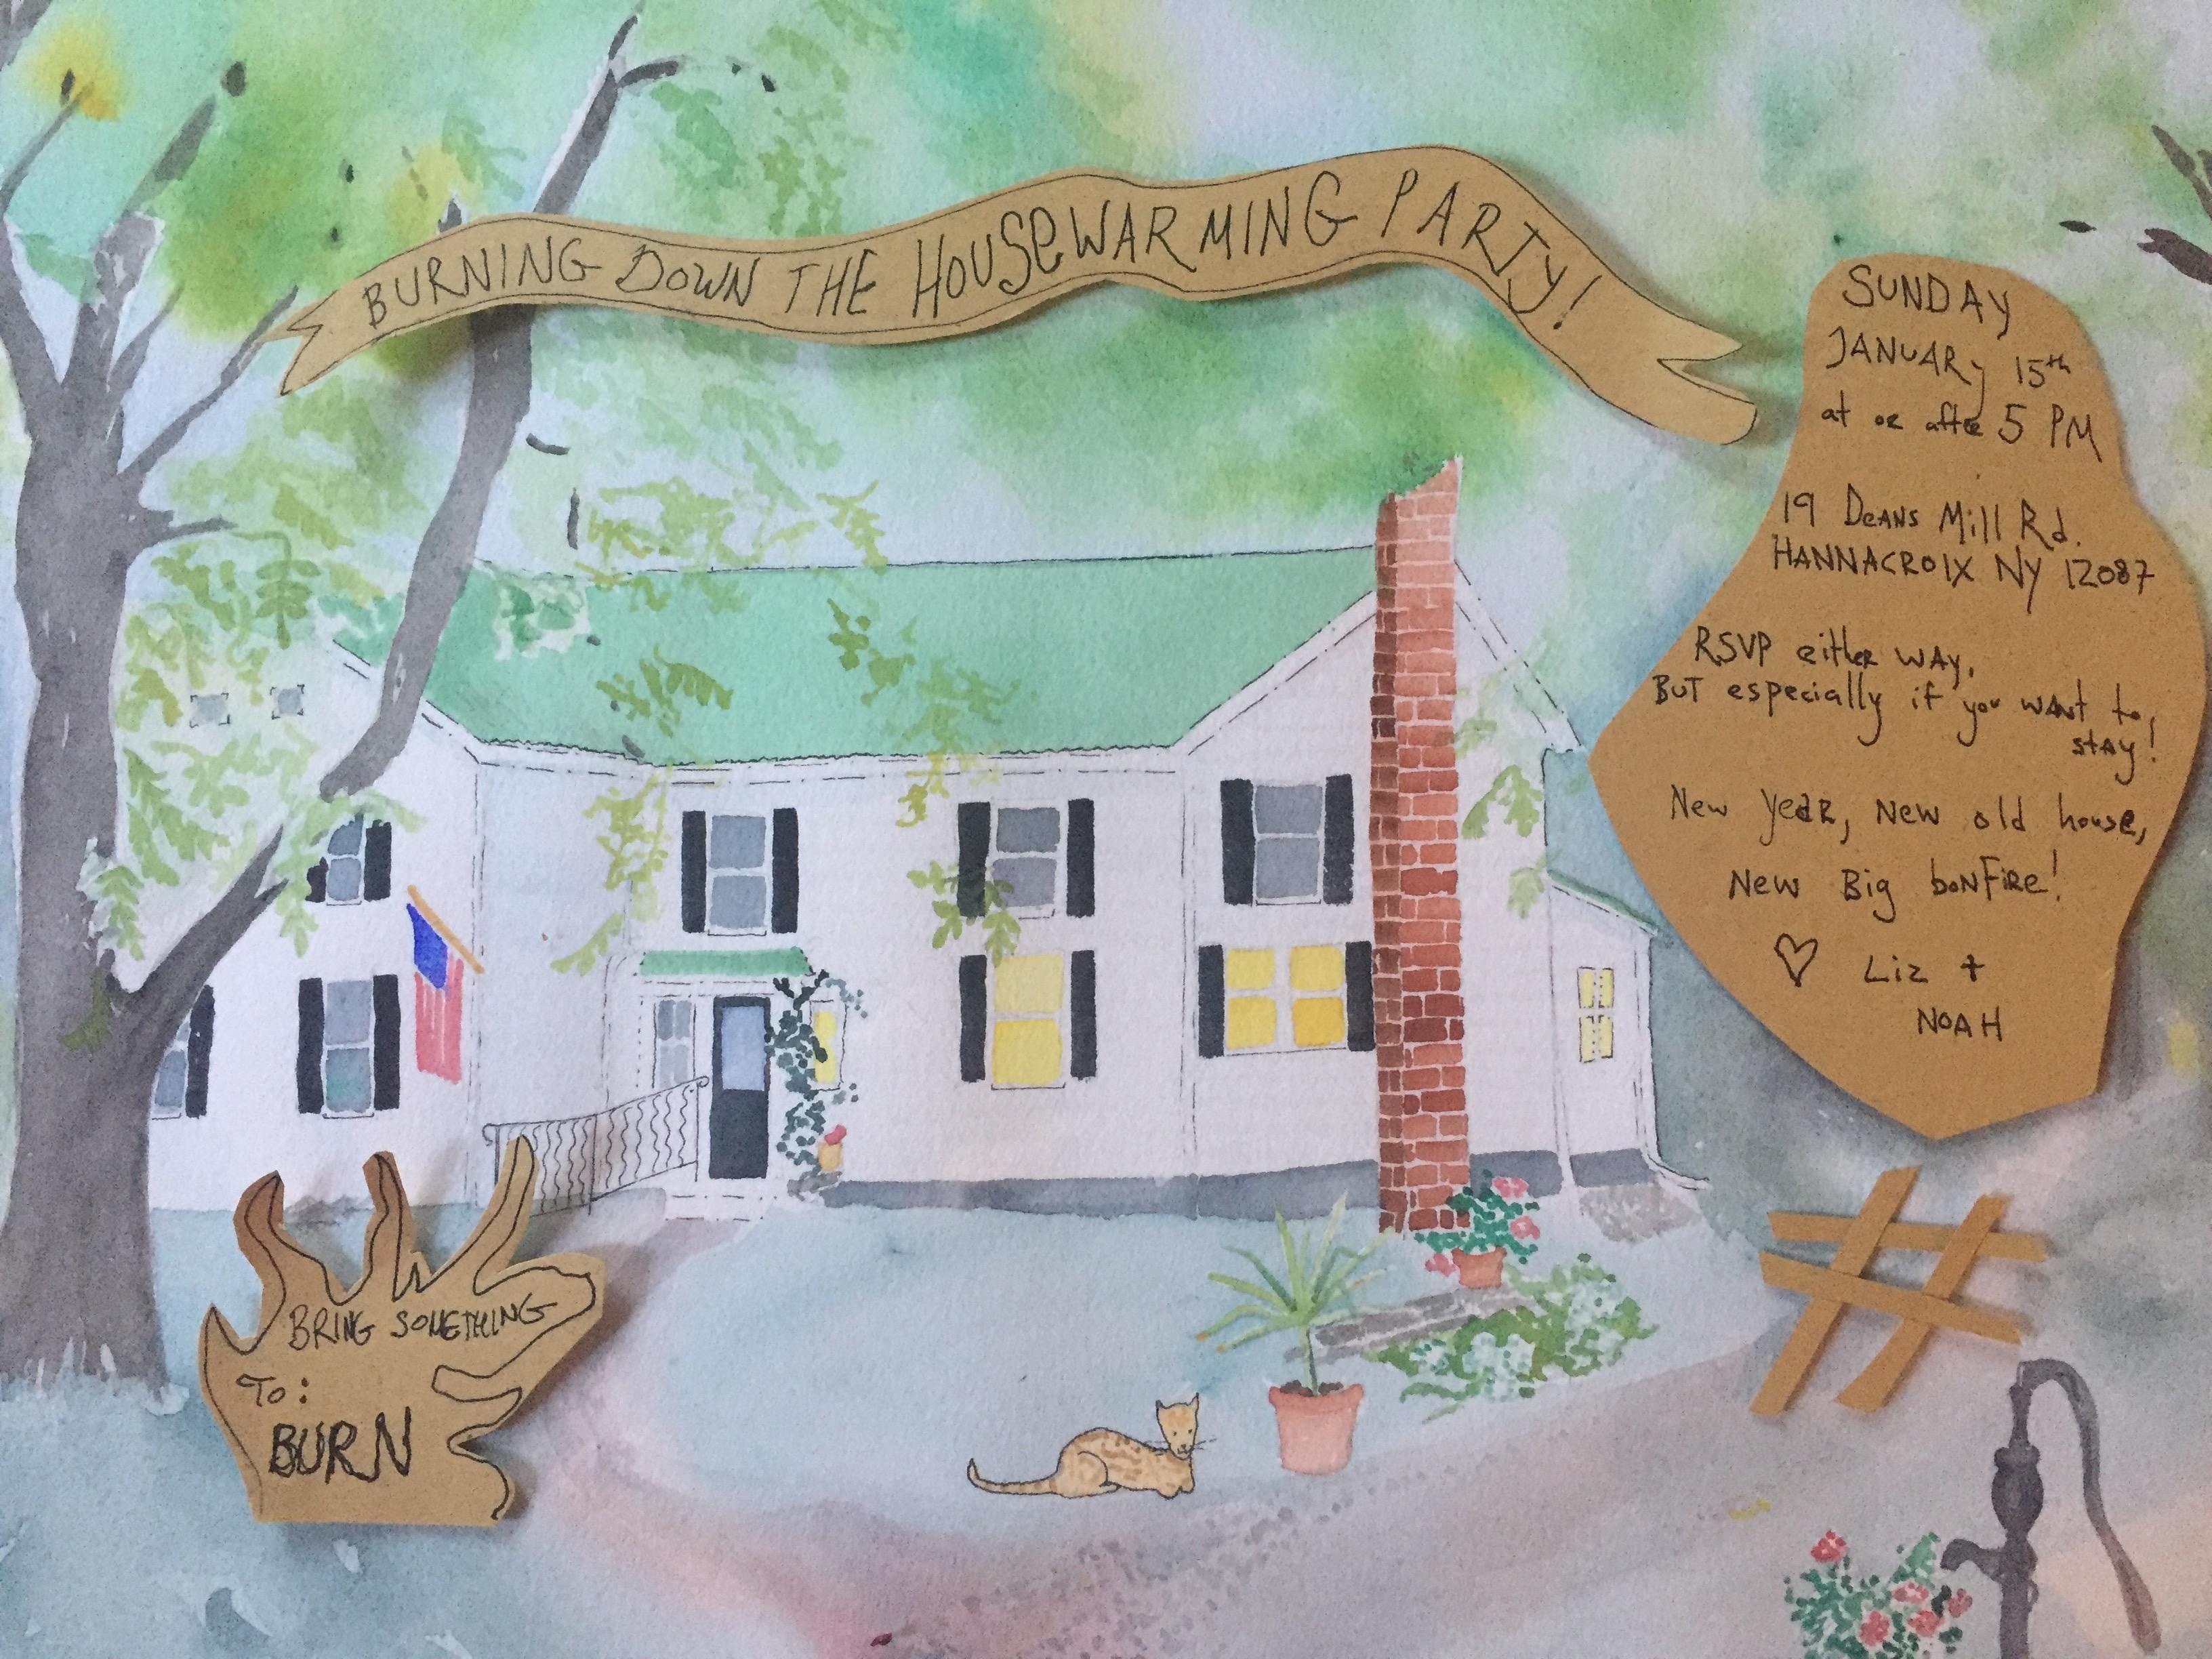 BURNING DOWN THE HOUSEWARMING PARTY!
SUNDAY
JANUARY 15th
at or after 5 PM
19 Deans Mill Rd.
HANNACROIX NY 12087
RSVP either way,
BUT especially if you want to,
stay!
New Year, New old house,
New Big bonFire!
♡ Liz +
NOAH
BRING SOMETHING
To:
BURN
#